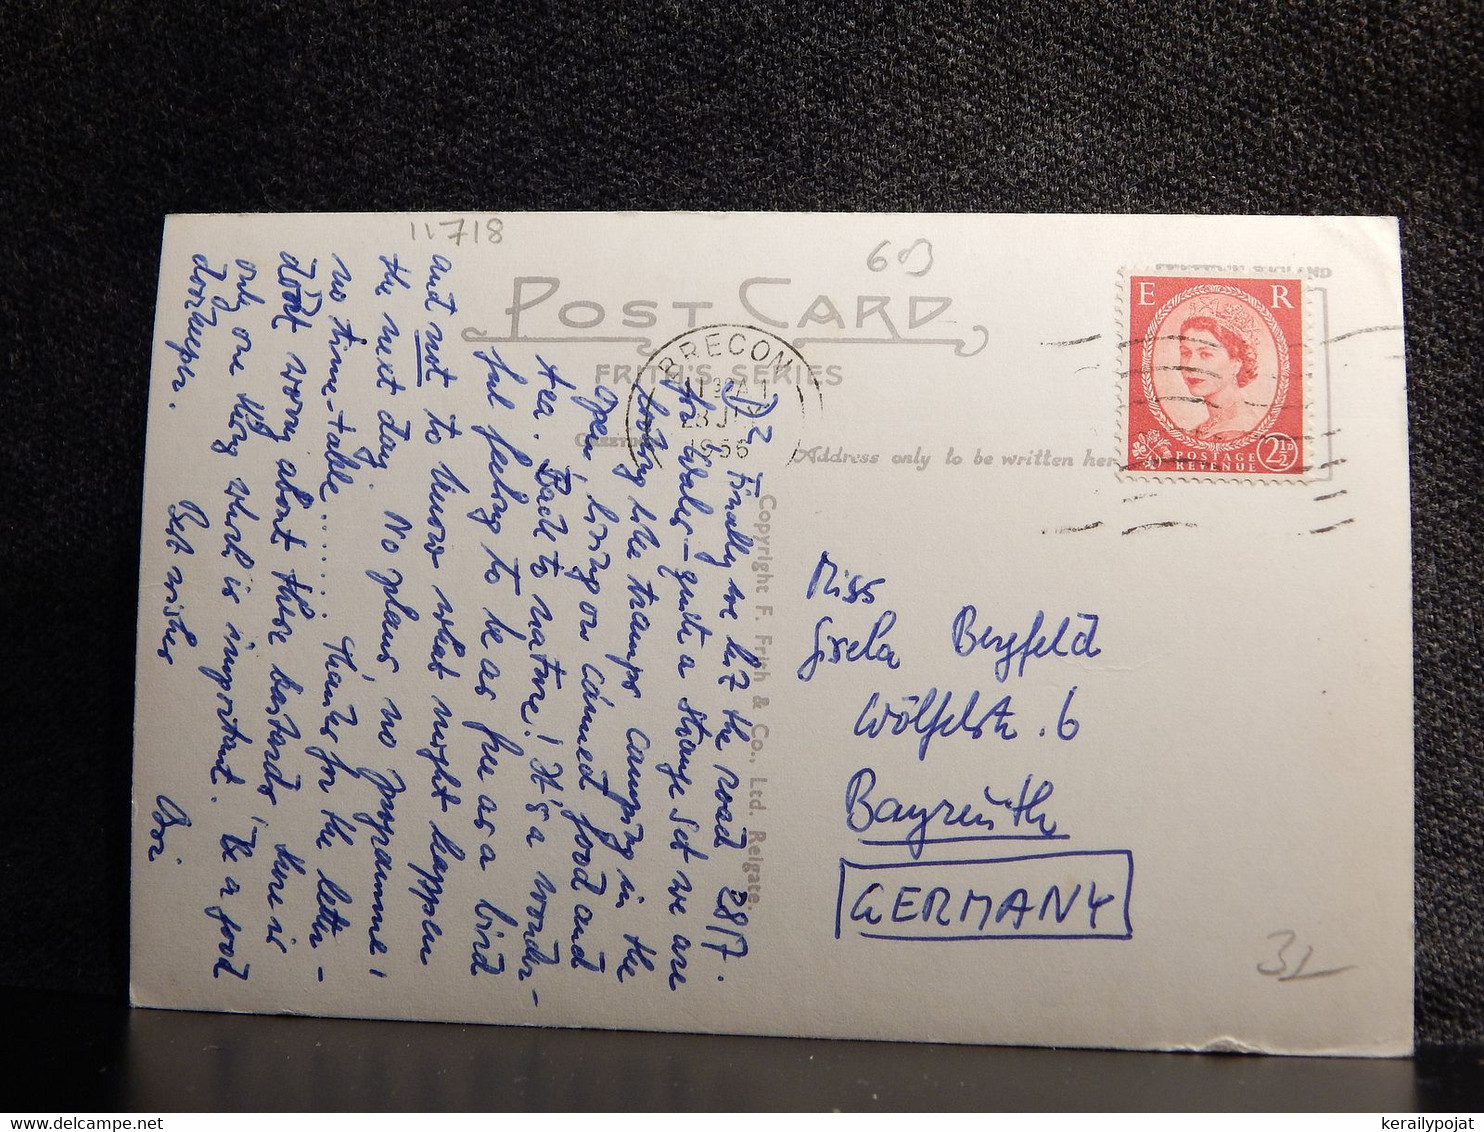 11718
603
POST CARD
FRITH'S SERIES
BRECON
1956
Address only to be written here
E R
POSTAGE REVENUE 2½D
Copyright F. Frith & Co., Ltd. Reigate.
28/7.
Finally we hit the road
for Wales – quite a strange set we are
looking like tramps camping in the
open, living on canned food and
tea. Back to nature! It's a wonder-
ful feeling to be as free as a bird
and not to know what might happen
the next day. No plans, no programme,
no time-table........ Thanks for the letter –
don't worry about these bastards, there is
only one thing which is important: Be a good
Best wishes
Miss
Gisela Bergfeld
Wölfelstr. 6
Bayreuth
GERMANY
31
kerailypojat